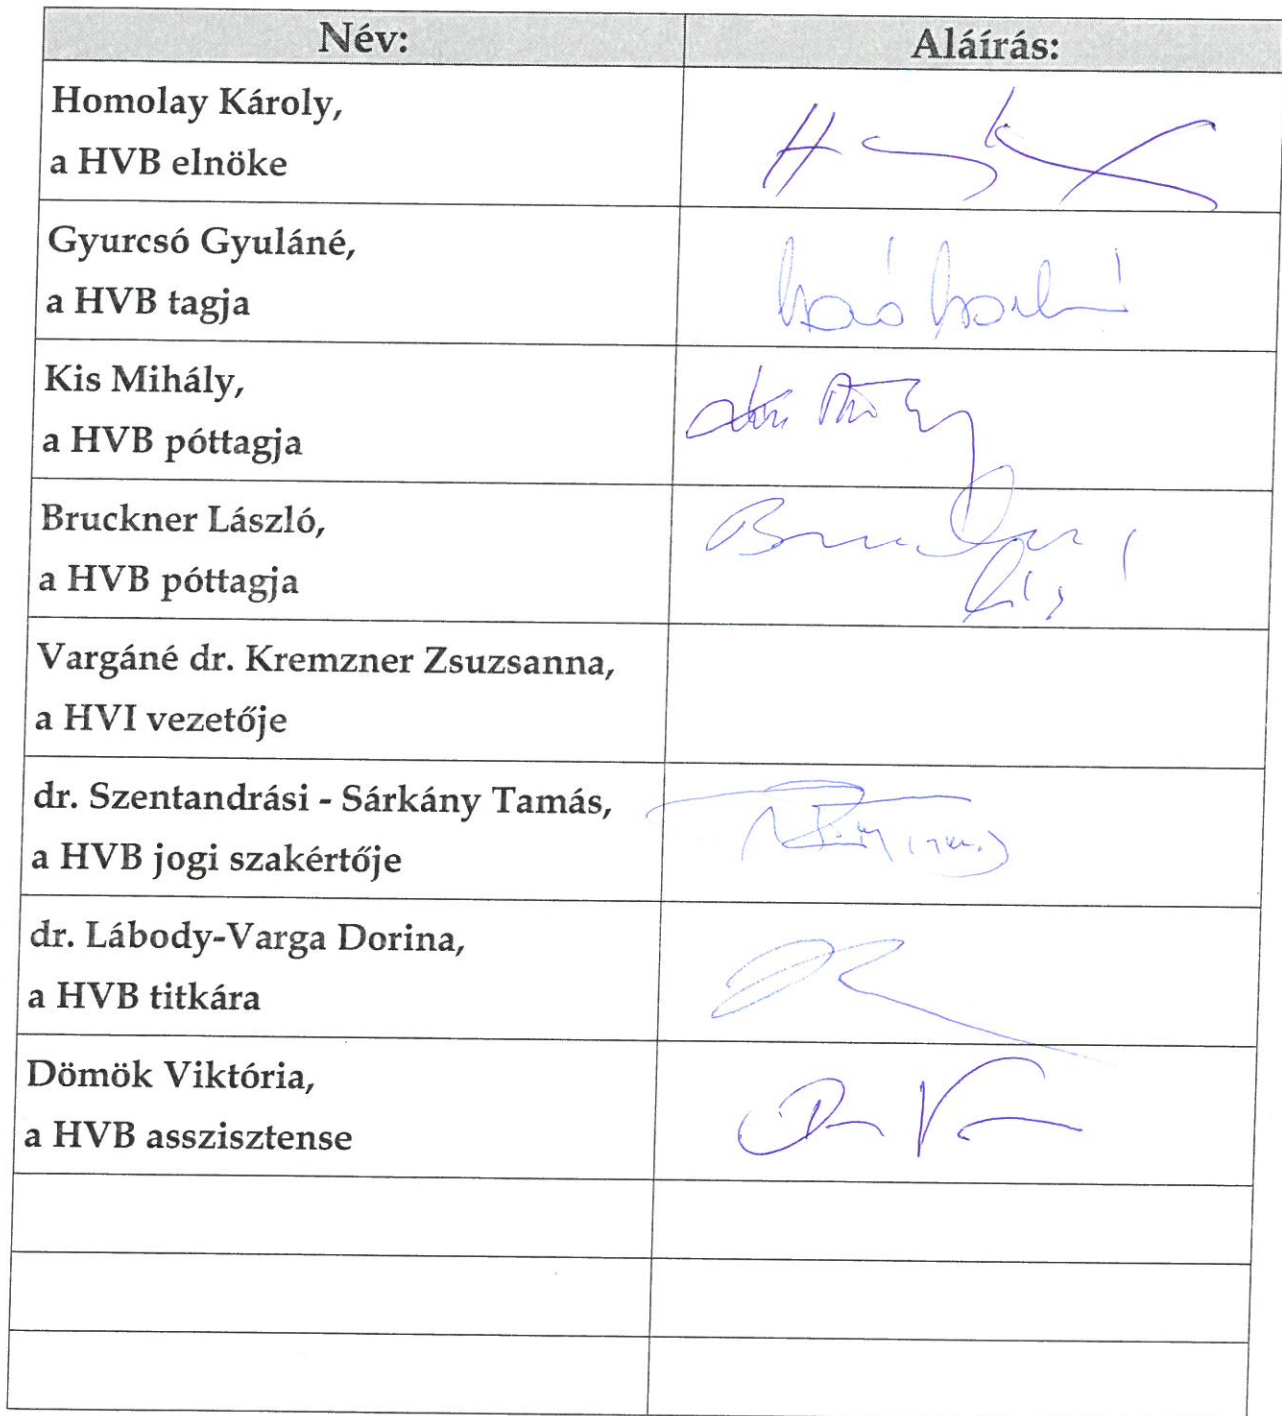 Név: Aláírás:
Homolay Károly,
a HVB elnöke
Gyurcsó Gyuláné,
a HVB tagja
Kis Mihály,
a HVB póttagja
Bruckner László,
a HVB póttagja
Vargáné dr. Kremzner Zsuzsanna,
a HVI vezetője
dr. Szentandrási - Sárkány Tamás,
a HVB jogi szakértője
dr. Lábody-Varga Dorina,
a HVB titkára
Dömök Viktória,
a HVB asszisztense